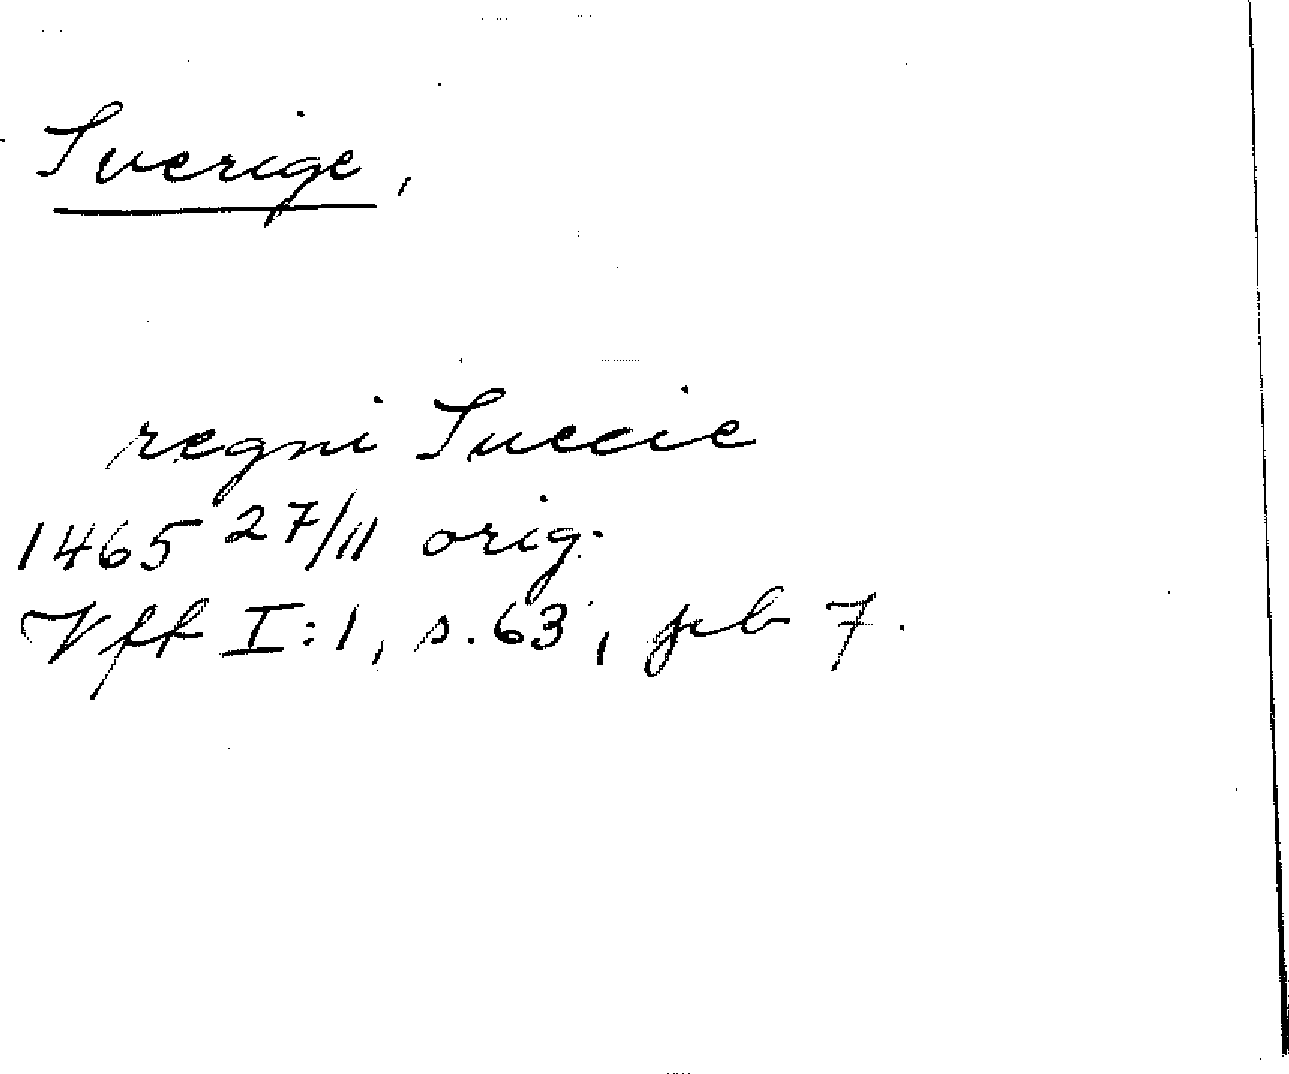 Sverige,
regni Suecie
1465 27/11 orig.
Vff I:1, s. 63, 7.